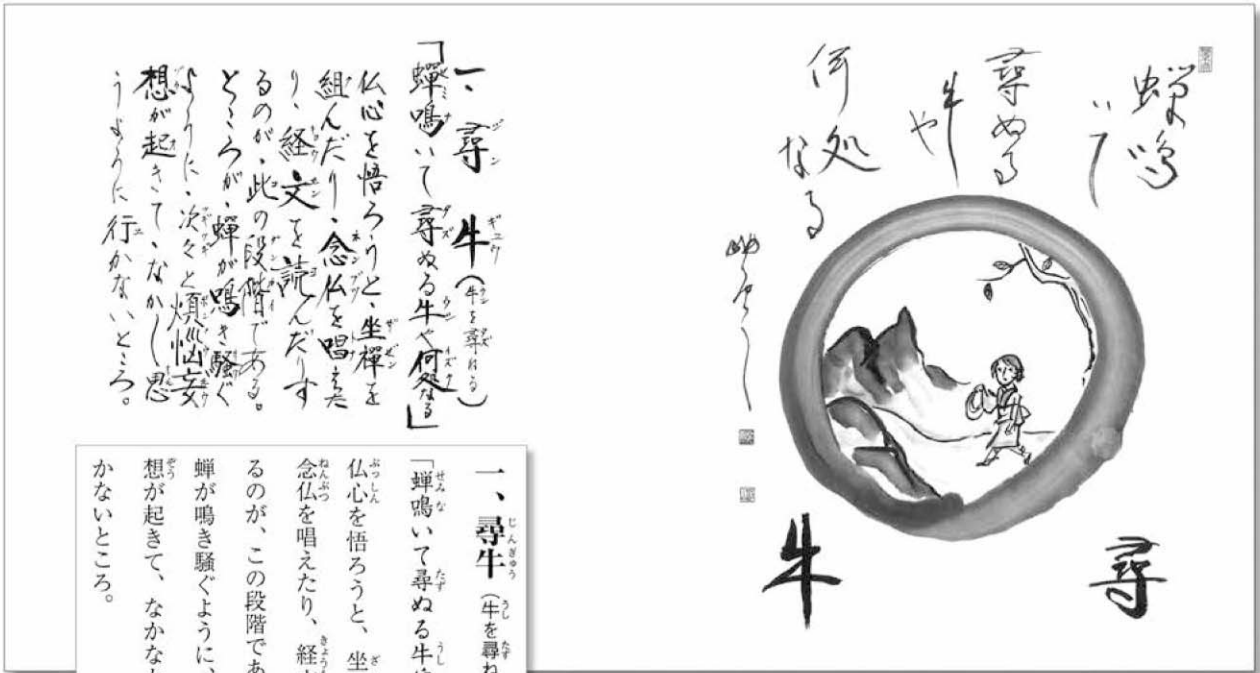 蟬鳴
いて
尋ぬる
牛や
何処
なる
尋牛
一、尋牛(牛を尋ねる)
「蟬鳴いて尋ぬる牛や何処なる」
仏心を悟ろうと、坐禪を
組んだり、念仏を唱えた
り、経文を読んだりす
るのが、此の段階である。
ところが、蟬が鳴き騒ぐ
ように、次々と煩悩妄
想が起きて、なか〳〵思
うように行かないところ。
一、尋牛(牛を尋ね
「蟬鳴いて尋ぬる牛
仏心を悟ろうと、坐
念仏を唱えたり、経
るのが、この段階であ
蟬が鳴き騒ぐように、
想が起きて、なかなか
かないところ。